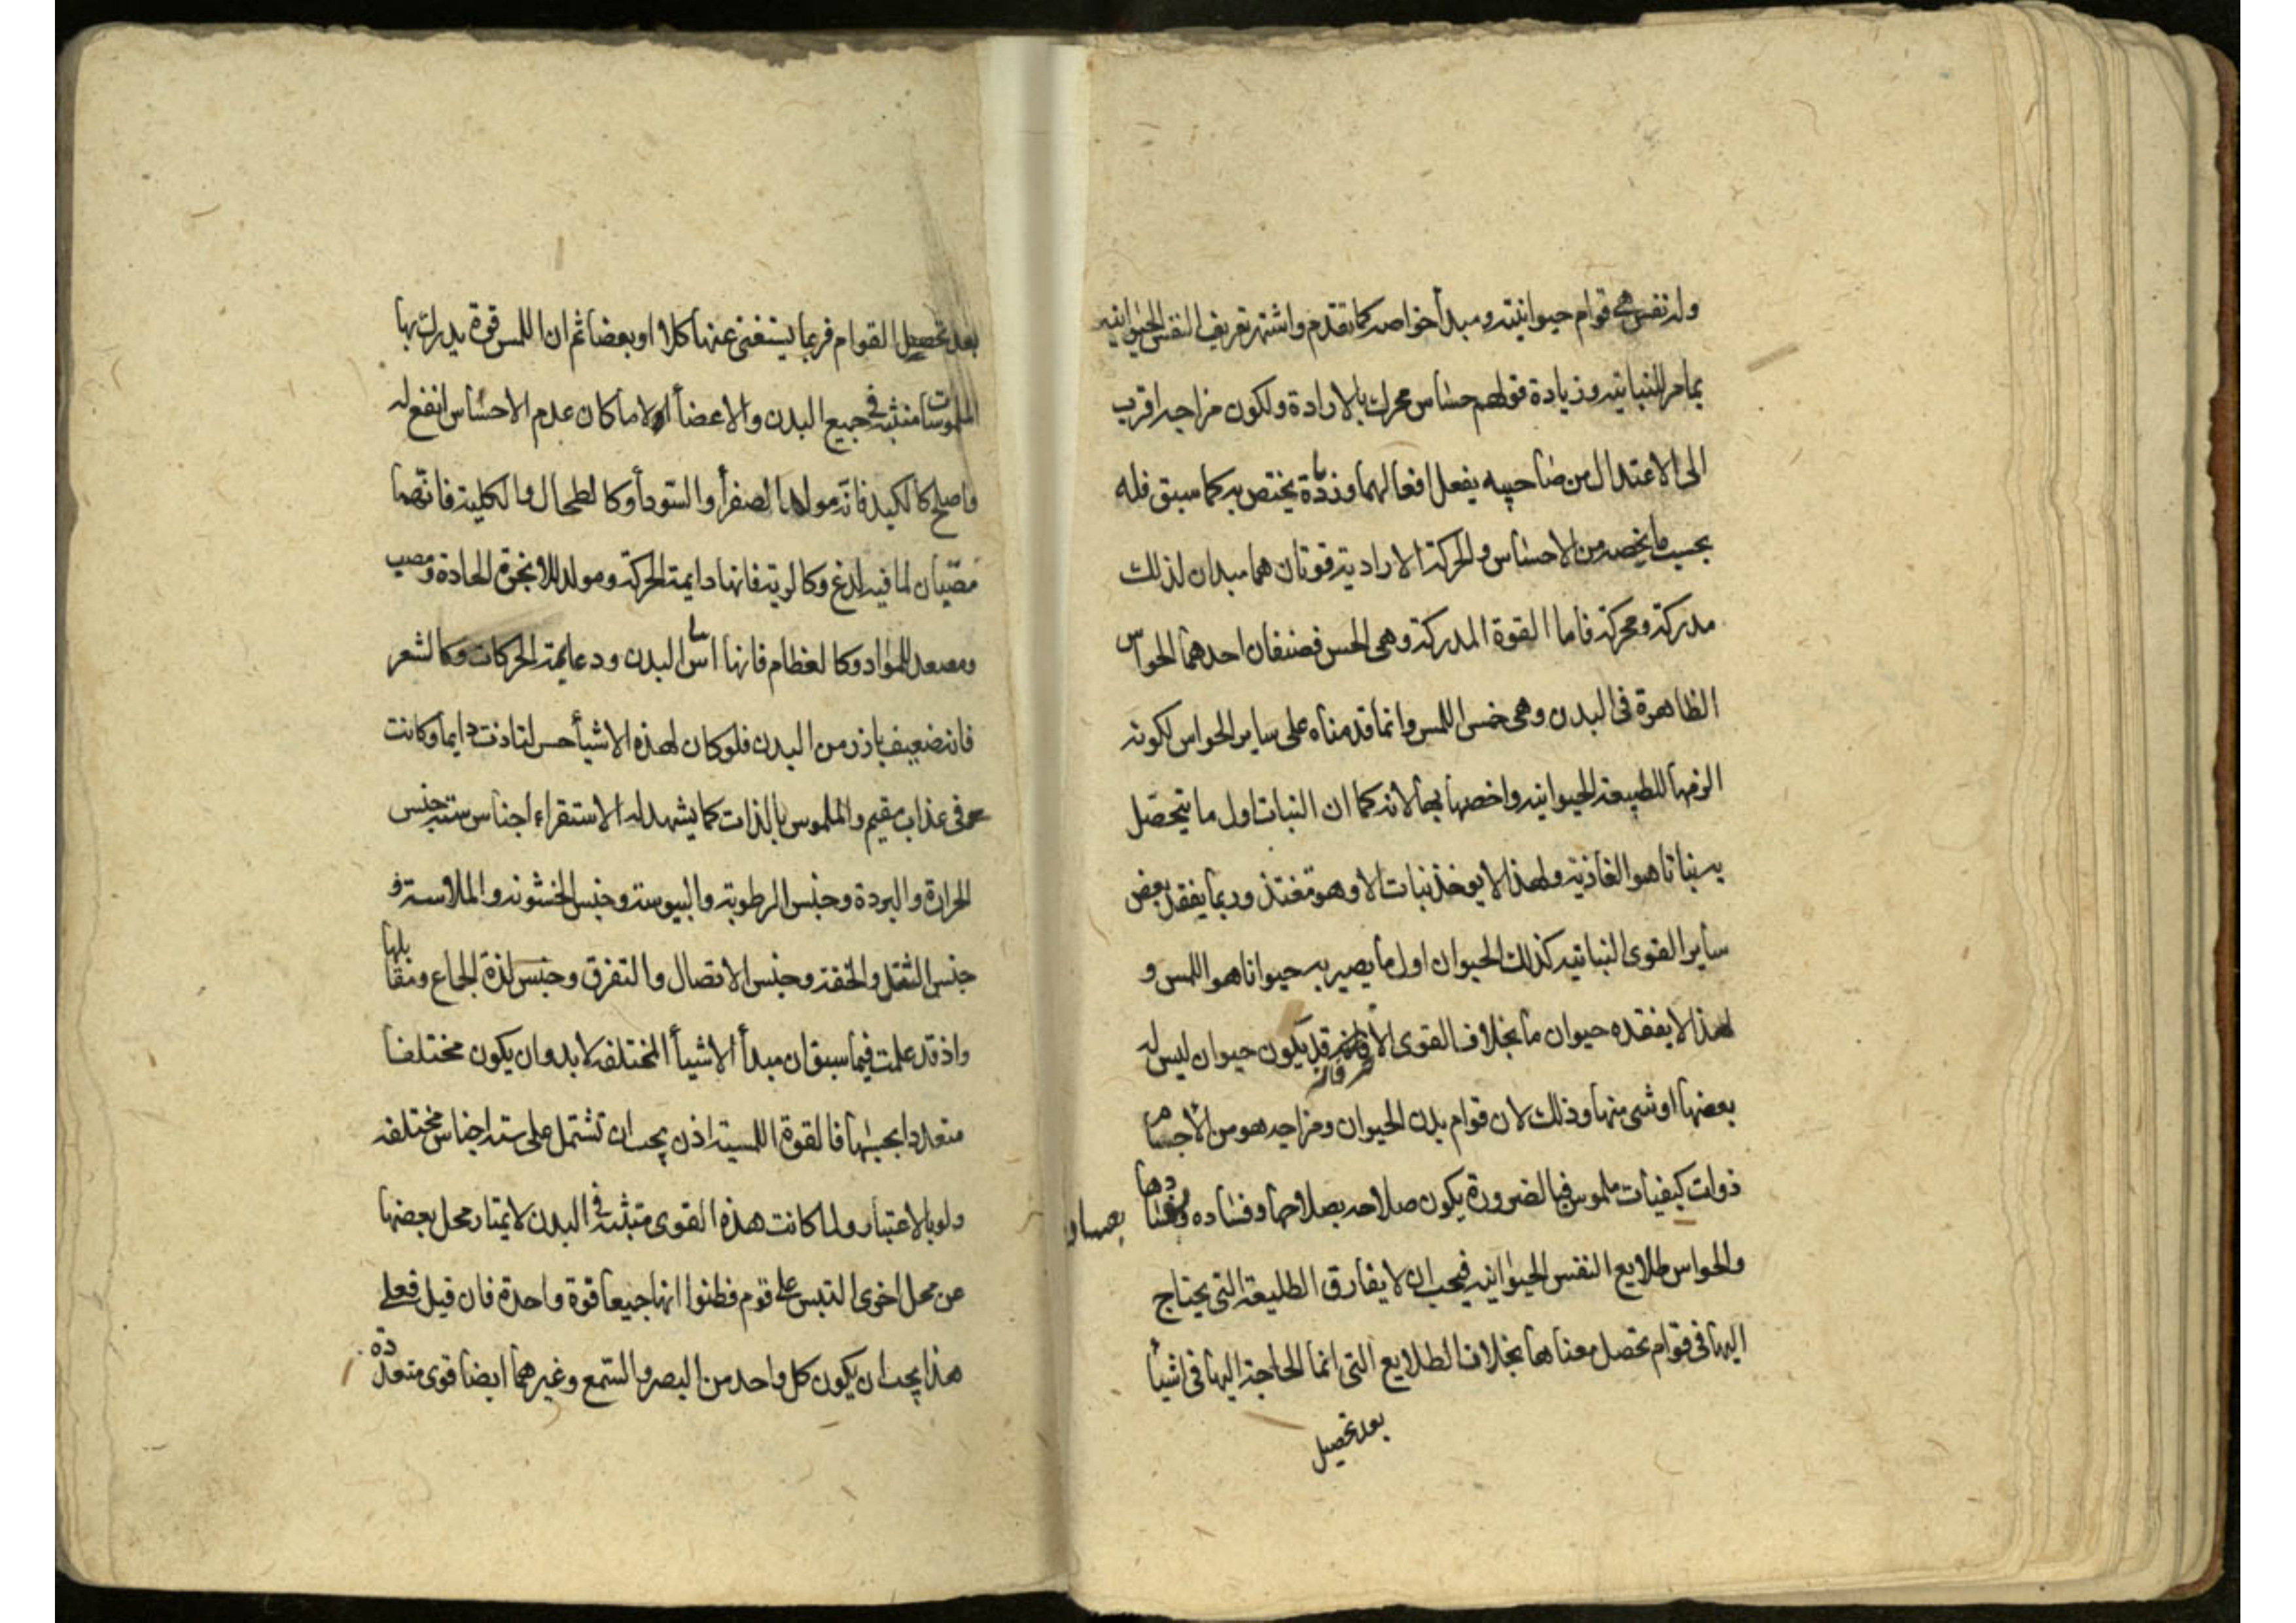 وله نفس هي قوام حيوانيته ومبدأ خواصه كما تقدم واشتهر تعريف النفس الحيوانيه
بما مر للنباتيه وزيادة قولهم حساس محرك بالارادة ولكون مزاجه اقرب
الى الاعتدال من صاحبيه يفعل افعالهما وزيادة يختص به كما سبق فله
بحسب ما يخصه من الاحساس والحركة الارادية قوتان هما مبدان لذلك
مدركة ومحركة فاما القوة المدركة وهى الحس فصنفان احدهما الحواس
الظاهرة فى البدن وهى خمس اللمس وانما قدمناه على ساير الحواس لكونه
الزمها للطبيعة الحيوانيه واخصها بها لانه كما ان النبات اول ما يتحصل
به نباتا هو الغاذية ولهذا لا يوخذ نبات الا وهو مغتذ وربما يفقد بعض
ساير القوى النباتيه كذلك الحيوان اول ما يصير به حيوانا هو اللمس و
لهذا لا يفقده حيوان ما بخلاف القوى الاخر فانه قد يكون حيوان ليس له
بعضها او شى منها وذلك لان قوام بدن الحيوان ومزاجه هو من الاجسام
ذوات كيفيات ملموس فبالضرورة يكون صلاحه بصلاحها وفساده بفسادها
والحواس طلايع النفس الحيوانيه فيجب ان لا يفارق الطليعة التى يحتاج
اليها فى قوام تحصل معناها بخلاف الطلايع التى انما الحاجة اليها فى اشيأ
بعد تحصيل
بعد تحصيل القوام فربما يستغنى عنها كلا او بعضا ثم ان اللمس قوة يدرك بها
الملموسات منبثة فى جميع البدن والاعضأ الا ما كان عدم الاحساس انفع له
واصلح كالكبد فانه مولد الصفرأ والسودأ وكالطحال والكلية فانهما
مصبان لما فيه لذع وكالرية فانها دايمة الحركة ومولد للابخرة الحادة ومصب
ومصعد للمواد وكالعظام فانها اساس البدن ودعايمة الحركات وكالشعر
فانه ضعيف بارز من البدن فلو كان لهذه الاشيأ حس لتاذت دايما وكانت
فى عذاب مقيم والملموس بالذات كما يشهد له الاستقراء اجناس ستة جنس
الحرارة والبرودة وجنس الرطوبة واليبوسة وجنس الخشونه والملاسة و
جنس الثقل والخفة وجنس الاتصال والتفرق وجنس لذة الجماع ومقابلها
واذ قد علمت فيما سبق ان مبدأ الاشيأ المختلفه لا بد وان يكون مختلفا
متعددا بحسبها فالقوة اللمسية اذن يجب ان تشتمل على ستة اجناس مختلفه
ولو بالاعتبار ولما كانت هذه القوى منبثة فى البدن لا يمتاز محل بعضها
عن محل اخرى التبس على قوم فظنوا انها جميعا قوة واحدة فان قيل فعلى
هذا يجب ان يكون كل واحد من البصر والسمع وغيرهما ايضا قوى متعددة